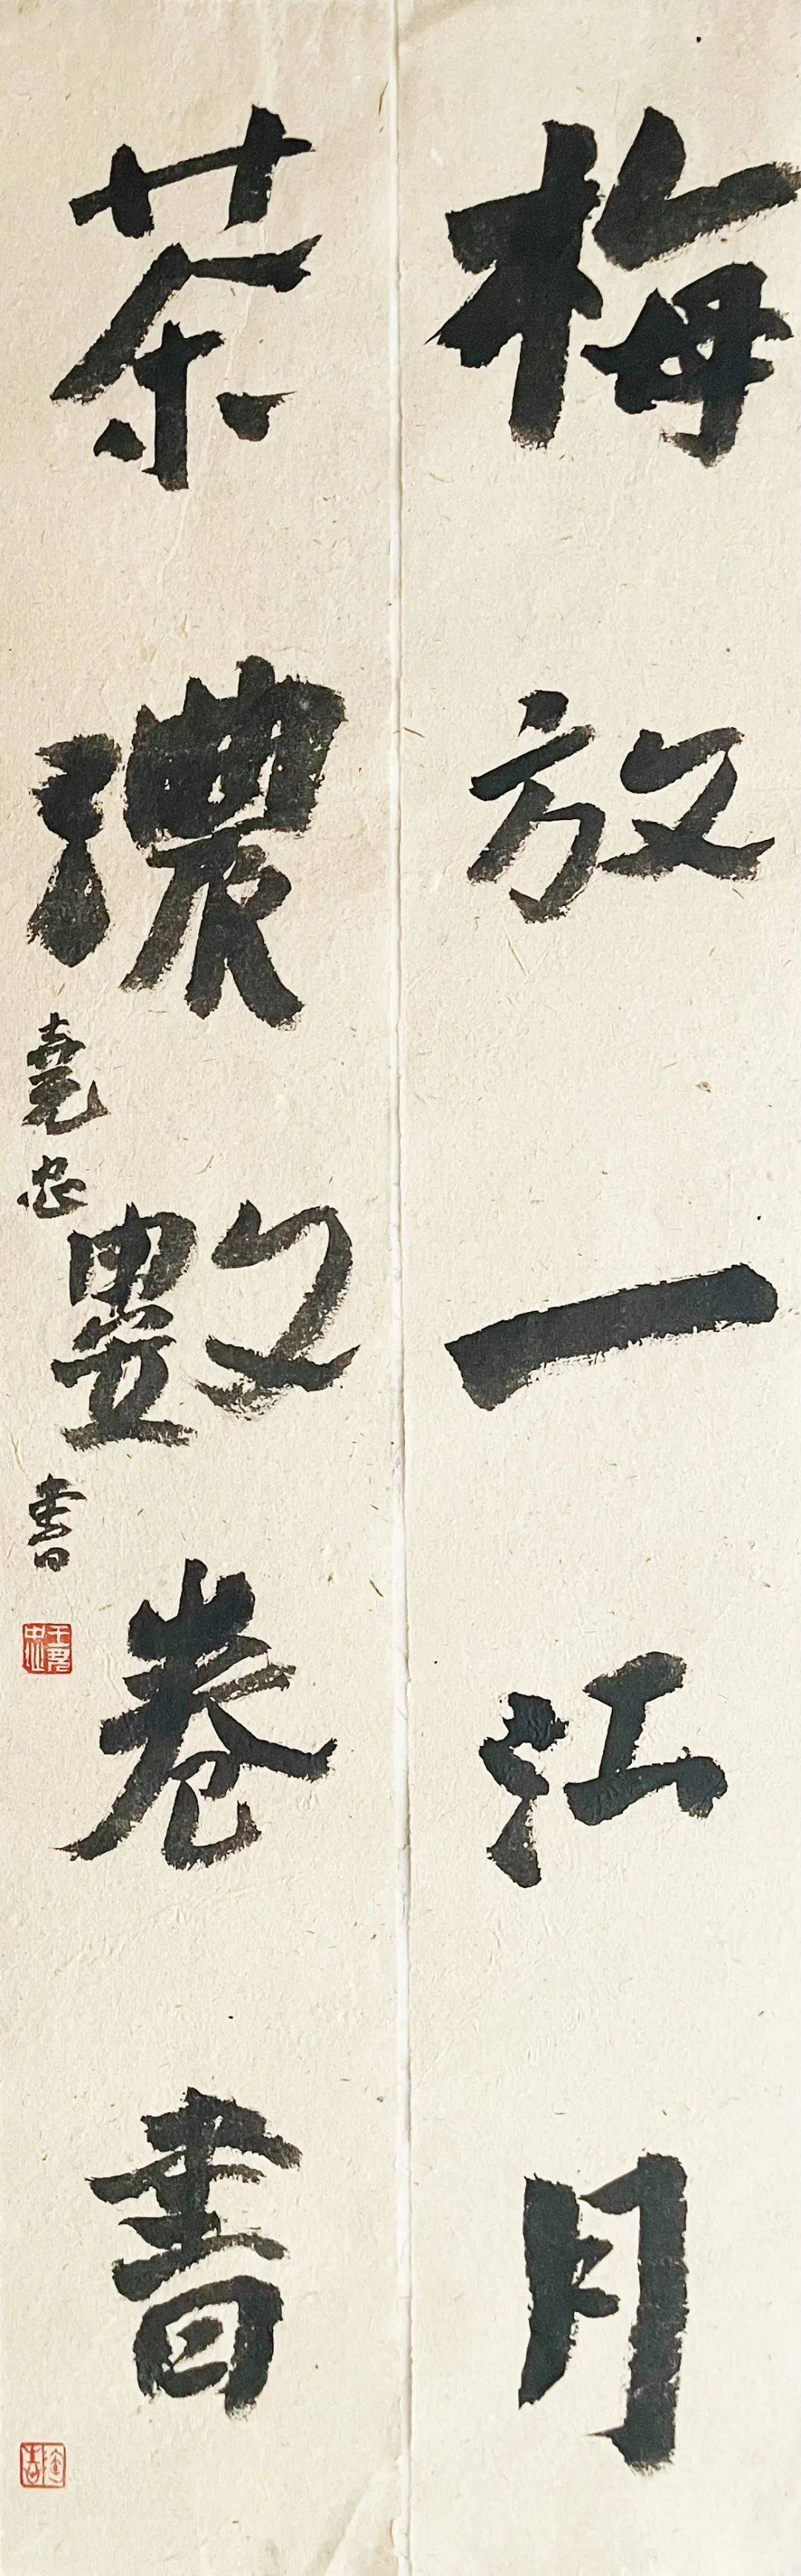 梅放一江月
茶濃數卷書
堯忠書